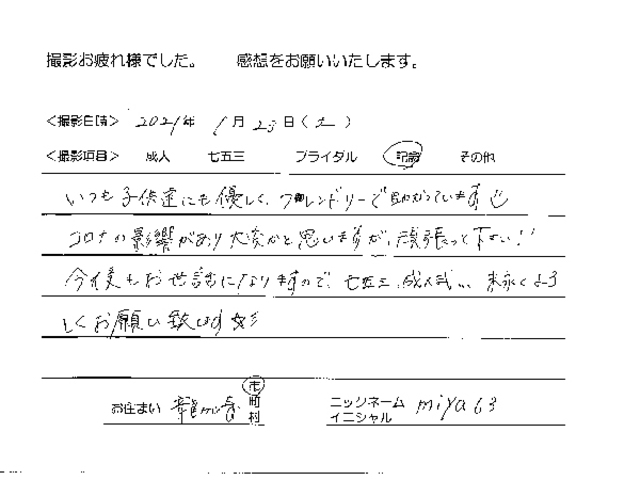 撮影お疲れ様でした。 感想をお願いいたします。
<撮影日時> 2021年 1月23日(土)
<撮影項目> 成人 七五三 ブライダル 記念 その他
いつも子供達にも優しく、フレンドリーで助かっています
コロナの影響があり大変かと思いますが、頑張って下さい!!
今後もお世話になりますので、七五三、成人式... 末永くよろ
しくお願い致します
お住まい 龍ヶ 市 町 村
ニックネーム イニシャル miya63